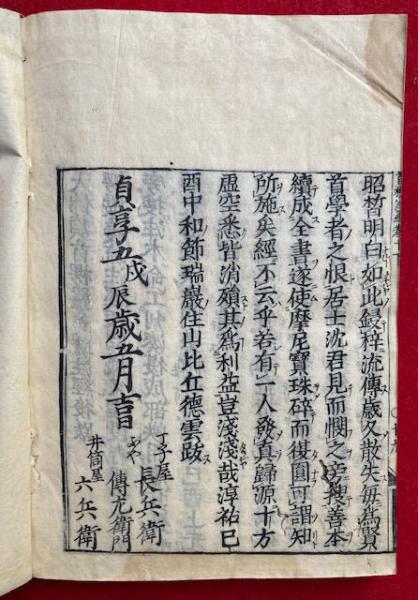 昭晳明白如此鋟梓流傳歲久散失毎爲賢
首學者之恨居士沈君見而憫之旁搜善本
續成全書遂使摩尼寶珠碎而復圓可謂知
所施矣經不云乎若有一人發真歸源十方
虚空悉皆消殞其爲利益豈淺淺哉淳祐己
酉中和節瑞巖住山比丘德雲跋
貞享五戊辰歲五月吉
丁子屋 長兵衛
傳左衛門
井筒屋 六兵衛